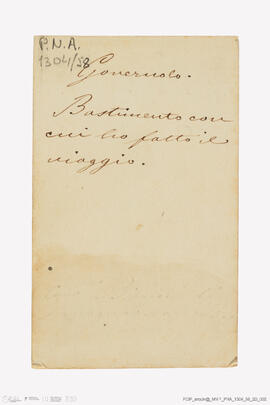 P.N.A.
1304/58
Governolo.
Bastimento con
cui ho fatto il
viaggio.